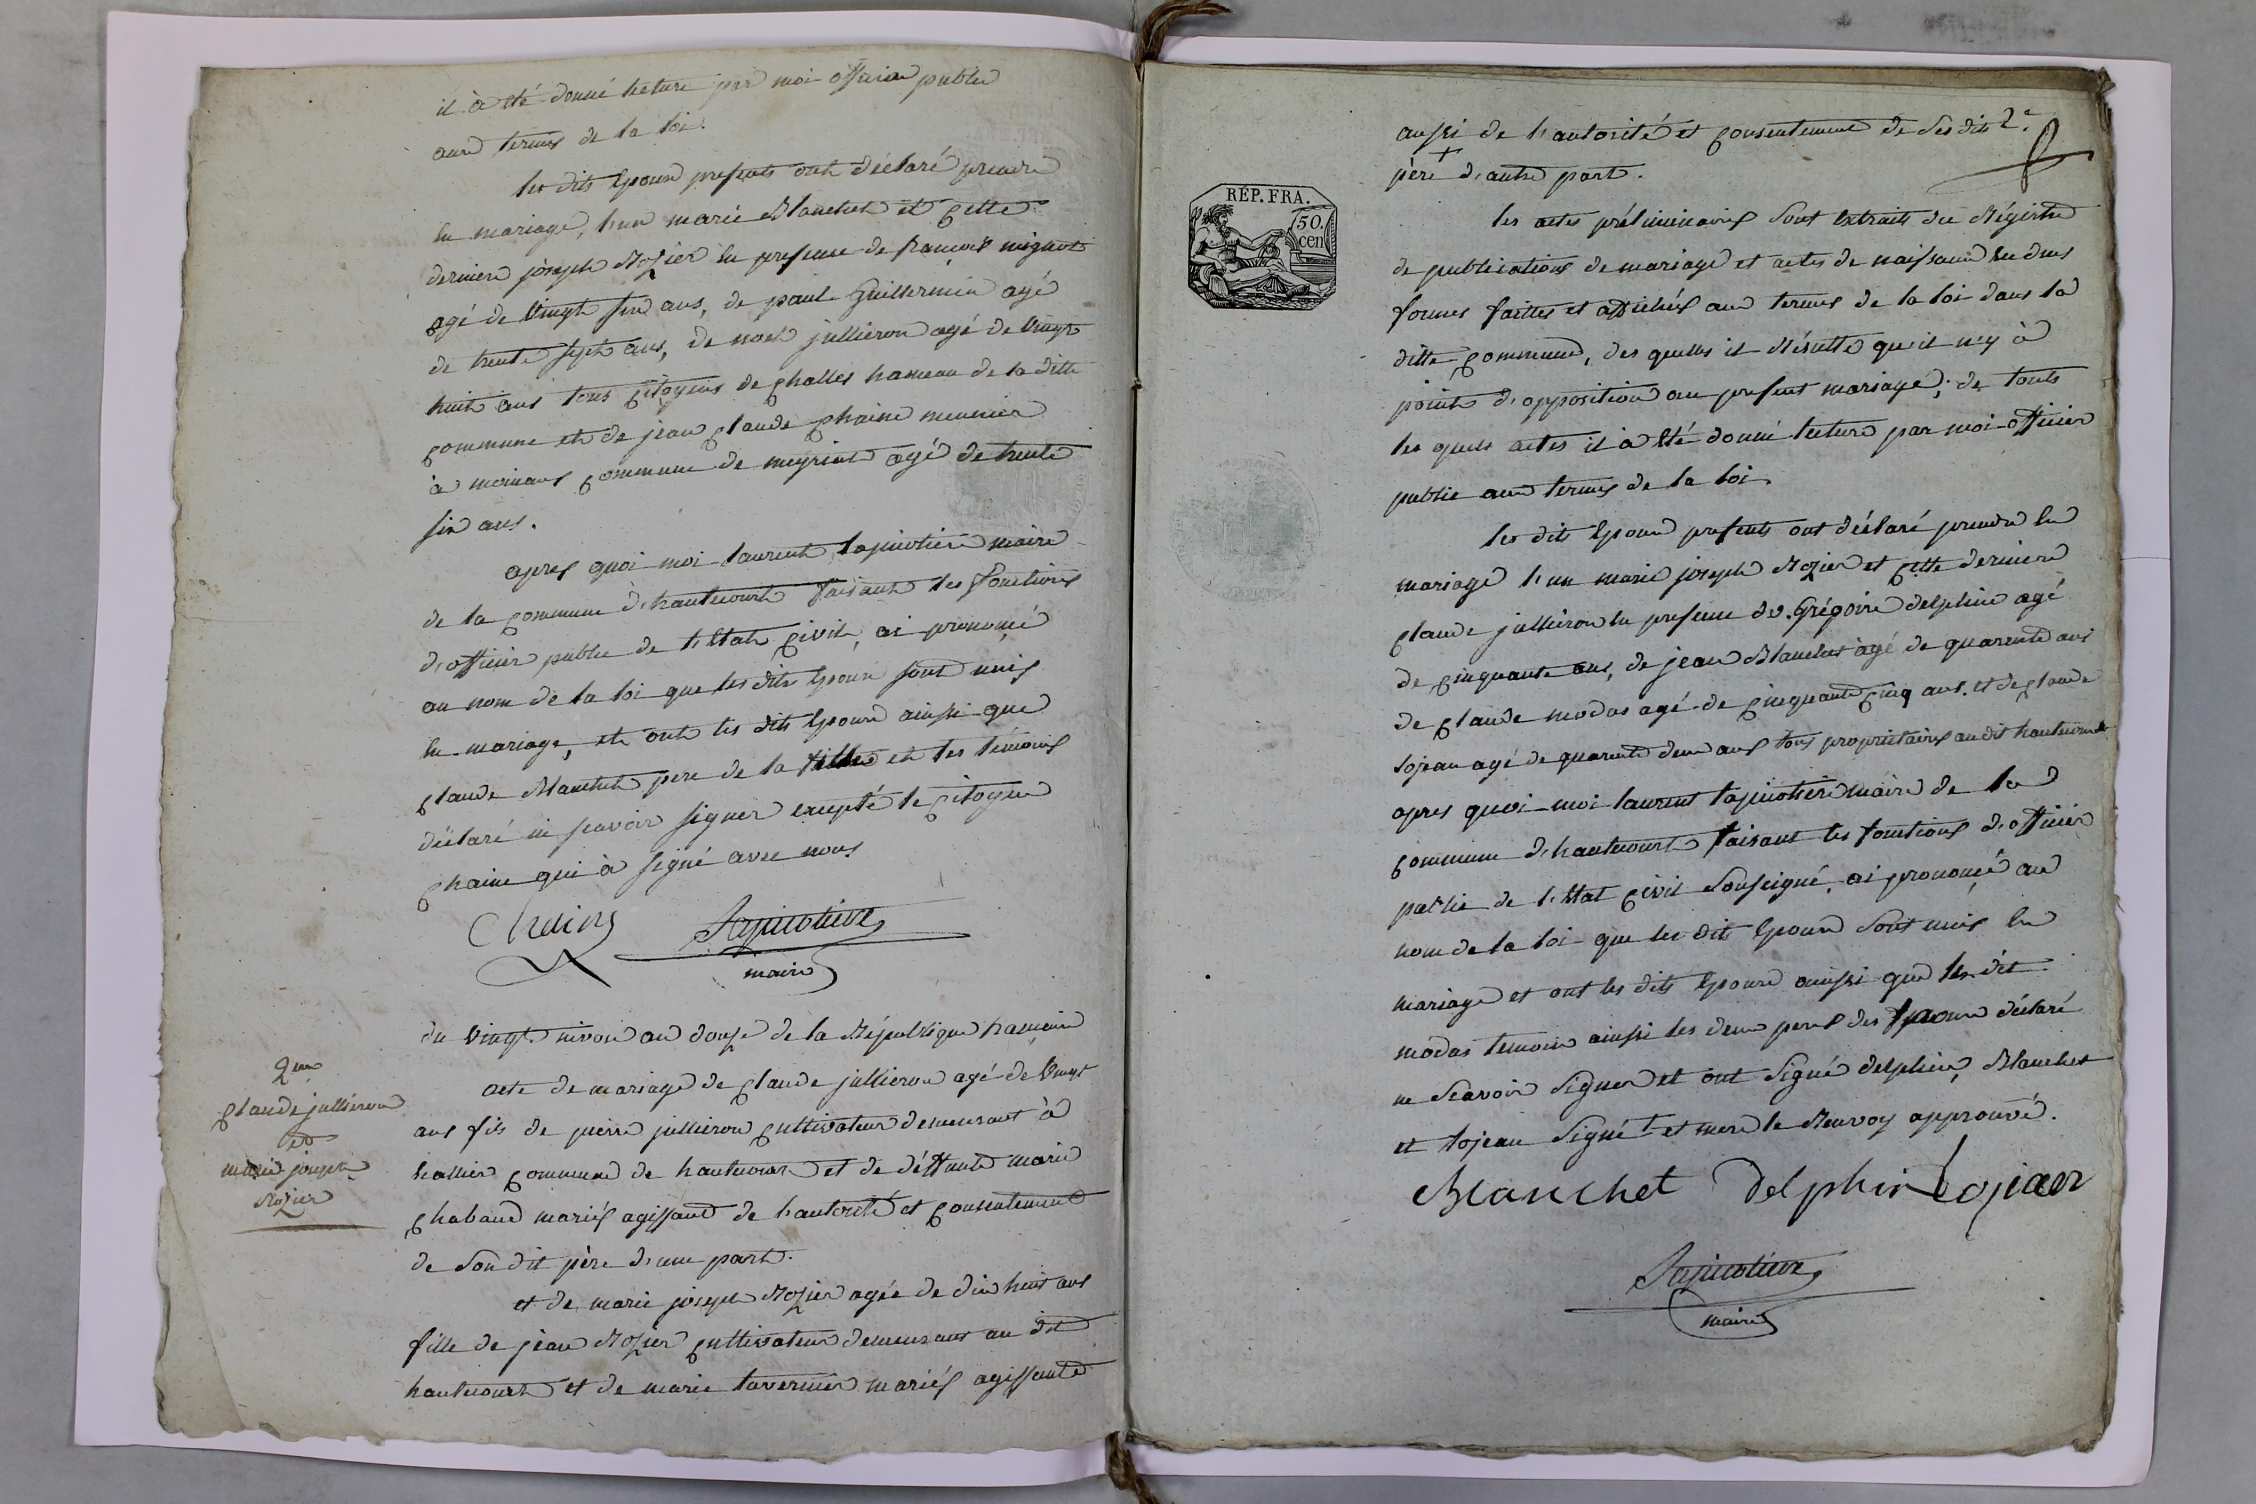 il à été donné lecture par moi officier public
aux termes de la loi.
les dits Epoux presents ont déclaré prendre
en mariage, l'un marie Blanchet et cette
derniere joseph Rozier en presence de françois mignot
agé de vingt six ans, de paul Guillermin agé
de trente sept ans, de noel jullieron agé de vingt
huit ans tous citoyens de challes hameau de la ditte
commune et de jean claude chaine meunier
à moinans commune de meyriat agé de trente
six ans.
apres quoi moi laurent tapicotiere maire
de la commune d'hautecourt faisant les fonctions
d'officier public de l'Etat civil, ai prononcé
au nom de la loi que les dits Epoux sont unis
en mariage, et ont les dits Epoux ainsi que
claude Blanchet pere de la fille et les témoins
déclaré ne scavoir signer excepté le citoyen
chaine qui à signé avec nous
Chaine Tapicotiere
maire
du vingt nivose an douze de la République française
2me
claude jullieron
et
marie joseph
Rozier
acte de mariage de claude jullieron agé de vingt
ans fils de pierre jullieron cultivateur demeurant à
hallier commune de hautecourt et de déffunte marie
chabaud mariés agissant de l'autorité et consentement
de son dit père d'une part.
et de marie joseph Rozier agée de dix huit ans
fille de jean Rozier cultivateur demeurant au dit
hautecourt et de marie tavernier mariés agissante
aussi de l'autorité et consentement de ses dits 2e
père + d'autre part.
RÉP. FRA.
50.
cen
les actes préliminaires sont Extraits du Régistre
de publications de mariage et actes de naissance en dues
formes faittes et affichés aux termes de la loi dans la
ditte commune, des quelles il Résulte qu'il n'y à
point d'opposition au present mariage; de touts
les quels actes il à été donné lecture par moi officier
public aux termes de la loi.
les dits Epoux presents ont déclaré prendre en
mariage l'un marie joseph Rozier et cette derniere
claude jullieron en presence de Grégoire delphin agé
de cinquante ans, de jean Blanchet agé de quarente ans
de claude modas agé de cinquante cinq ans. et de claude
lojean agé de quarente deux ans tous propriétaires au dit hautecourt
apres quoi moi laurent tapicotiere maire de la
commune d'hautecourt faisant les fonctions d'officier
public de l'Etat civil soussigné, ai prononcé au
nom de la loi que les dits Epoux sont unis en
mariage et ont les dits Epoux ainsi que le dit
modas temoin ainsi les deux peres des Epoux déclaré
ne scavoir signer et ont signé delphin, Blanchet
et lojean signé + et mere le Renvoy approuvé.
Blanchet delphin Lojean
Tapicotiere
maire